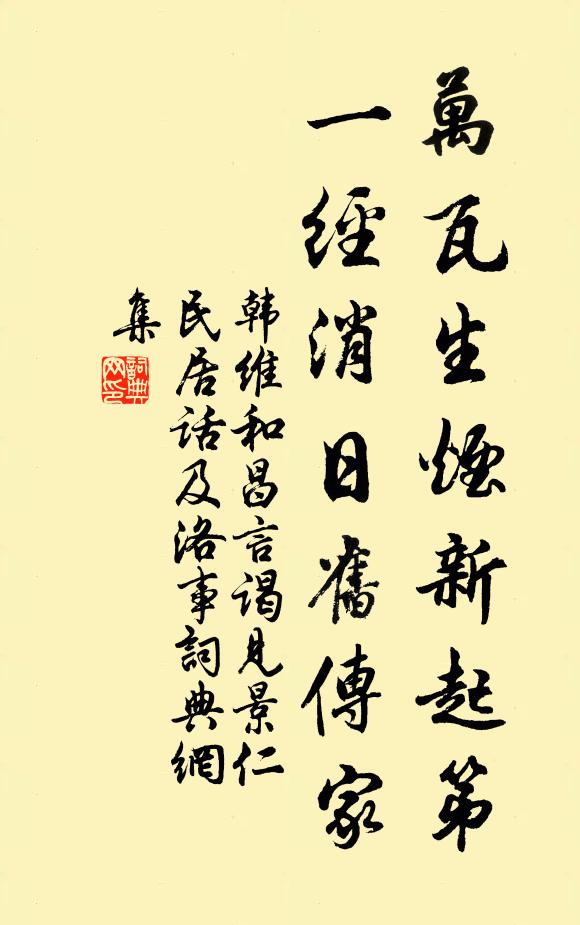 萬瓦生煙新起第
一經消日舊傳家
韩維和昌言谒見景仁
民居話及洛事詞典網
集
詞典
网印